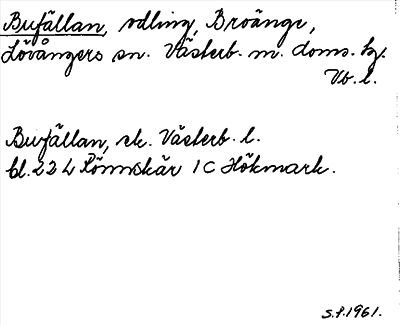 Bufällan, odling, Broänge,
Lövångers sn. Västerb. m. doms. hg.
Vb. l.
Bufällan, ek. Västerb. l.
bl. 22 L Rönnskär 1 C Hökmark.
S.f. 1961.